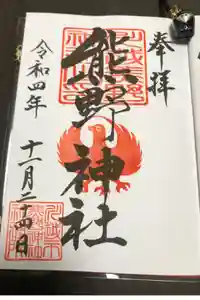 奉拝
熊野神社
令和四年
十一月二十四日